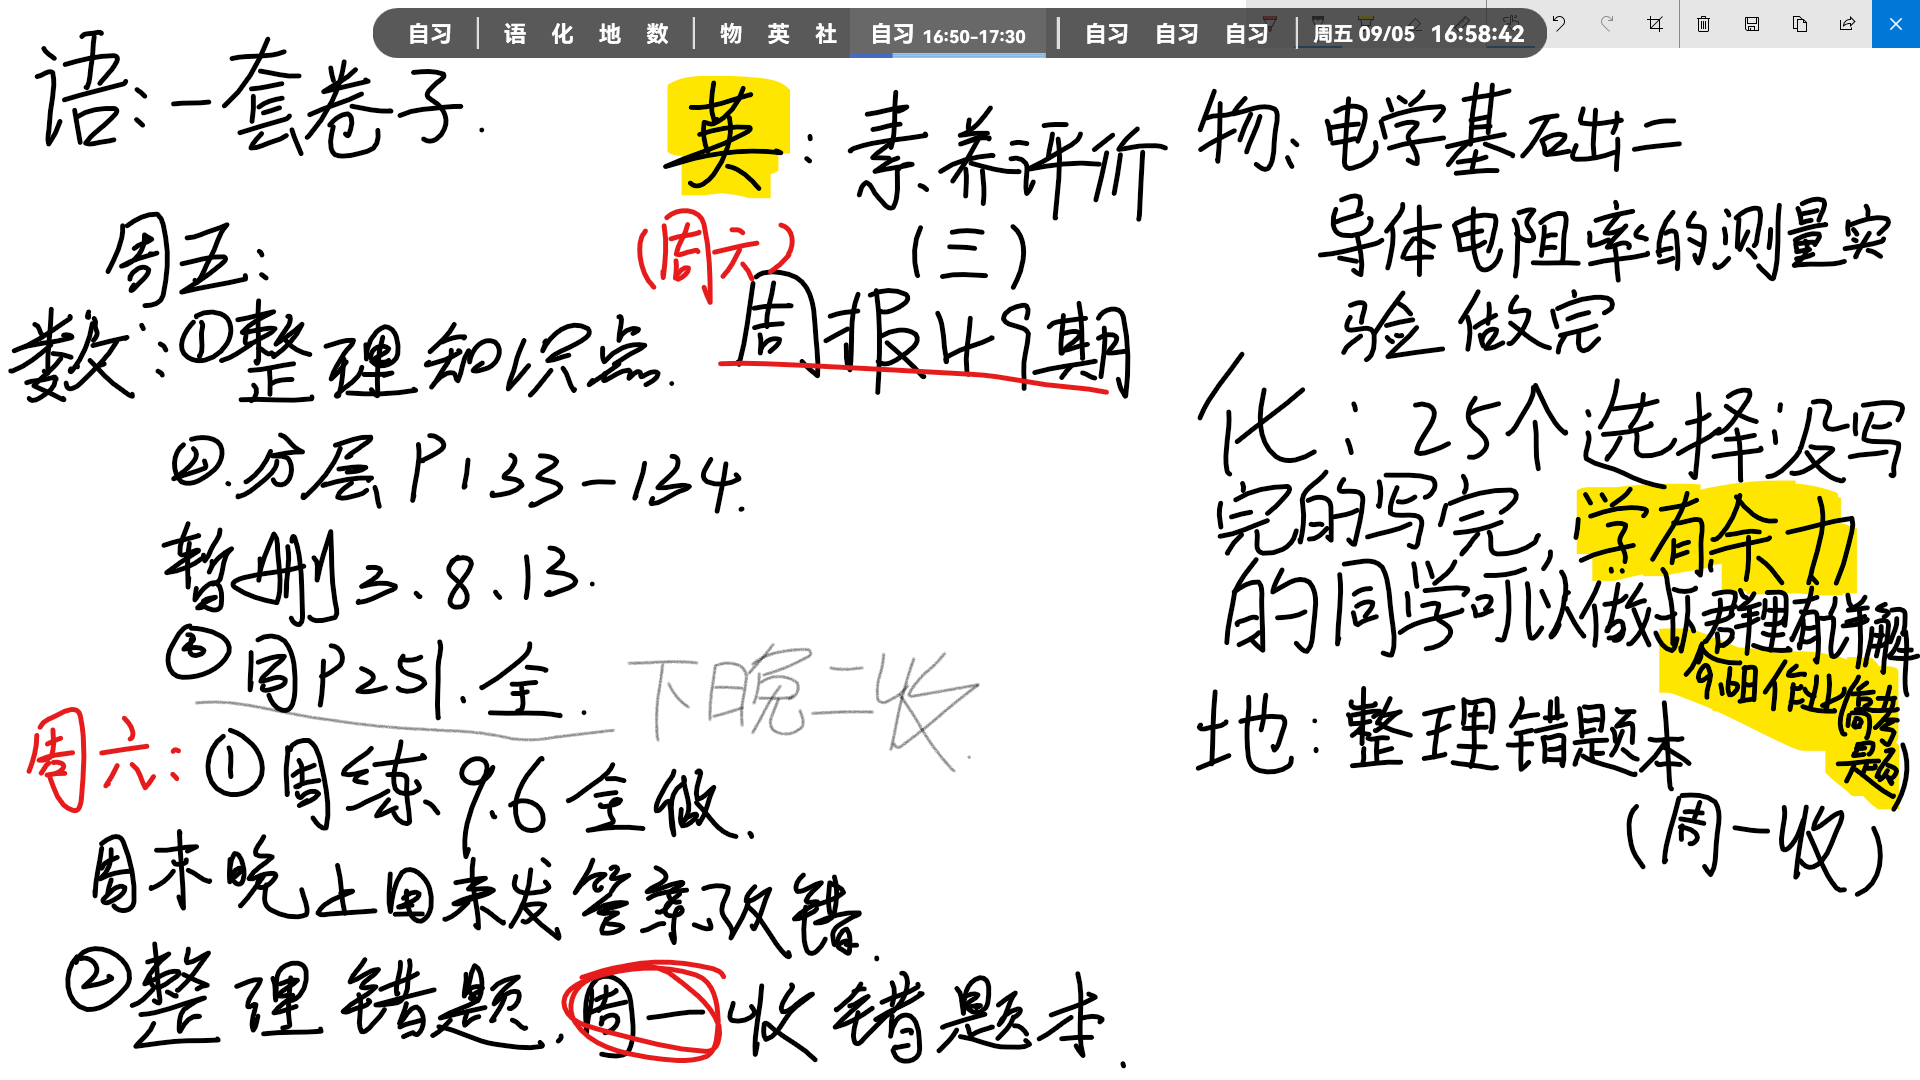 自习 | 语 化 地 数 | 物 英 社 自习 16:50-17:30 | 自习 自习 自习 | 周五 09/05 16:58:42
语:一套卷子.
周五:
数:①整理知识点.
②.分层P133-134.
暂删3、8、13.
③同P251.全.
下晚二收.
周六:①周练9.6全做.
周末晚上回来发答案改错.
②整理错题,周一收错题本.
英:素养评价
(三)
(周六)
周报49期
物:电学基础二
导体电阻率的测量实
验做完
化:25个选择没写
完的写完,学有余力
的同学可以做
群里有详解
9.6日作业(高考
题)
地:整理错题本
(周一收)